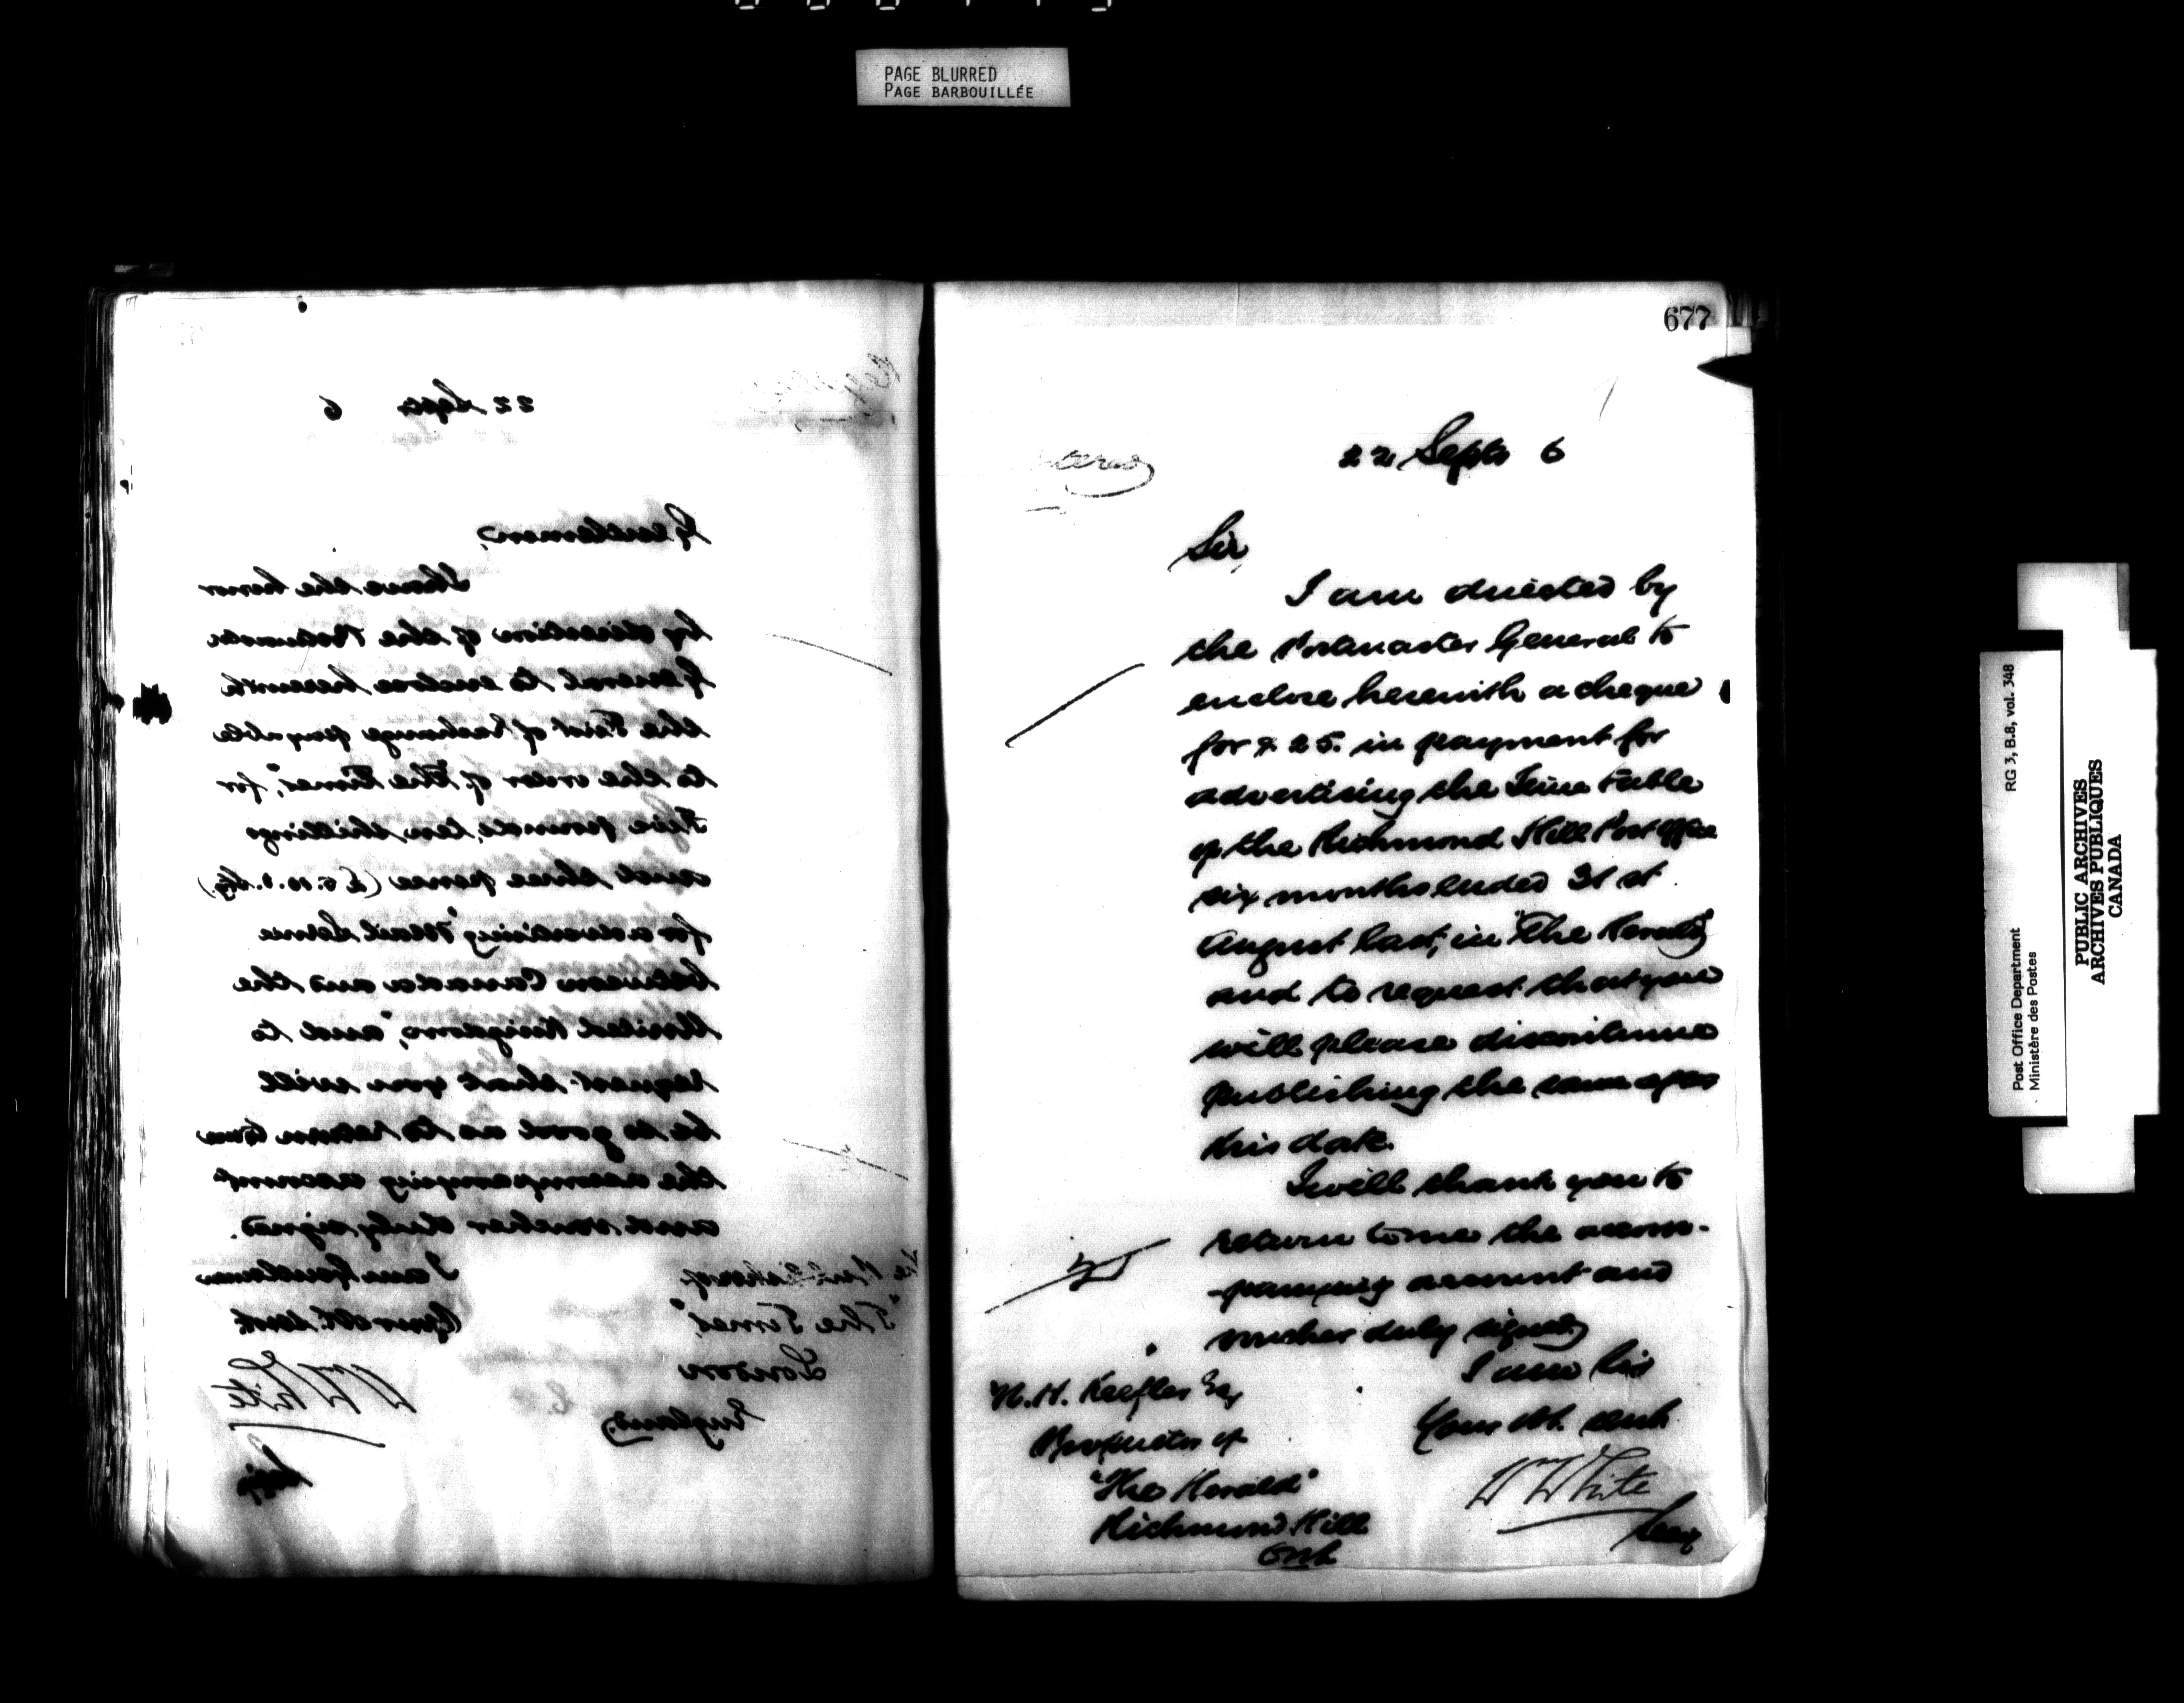 PAGE BLURRED
PAGE BARBOUILLÉE
22 Septr 6
Gentlemen,
I have the honor
by direction of the Postmaster
General to enclose herewith
the First of Exchange payable
to the order of "The Times", for
Five pounds, ten shillings
and three pence (£5.10.3. Stg.)
for advertising "Mail Service
between Canada and the
United Kingdom", and to
request that you will
be so good as to return to me
the accompanying account
and voucher duly signed.
I am Gentlemen
Your Ob. Servt
The Publisher of
"The Times"
London
England
W White
Secy
677
22 Septr 6
Sir,
I am directed by
the Postmaster General to
enclose herewith a cheque
for $25. in payment for
advertising the Time Table
of the Richmond Hill Post Office
six months ended 31st
August last, in "The Herald"
and to request that you
will please discontinue
publishing the same after
this date.
I will thank you to
return to me the accom-
-panying account and
voucher duly signed
I am Sir
Your Ob. Servt
W White
Secy
Keefler Esq
Proprietor of
"The Herald"
Richmond Hill
Ont
Post Office Department
Ministère des Postes
RG 3, B.8, vol. 348
PUBLIC ARCHIVES
ARCHIVES PUBLIQUES
CANADA